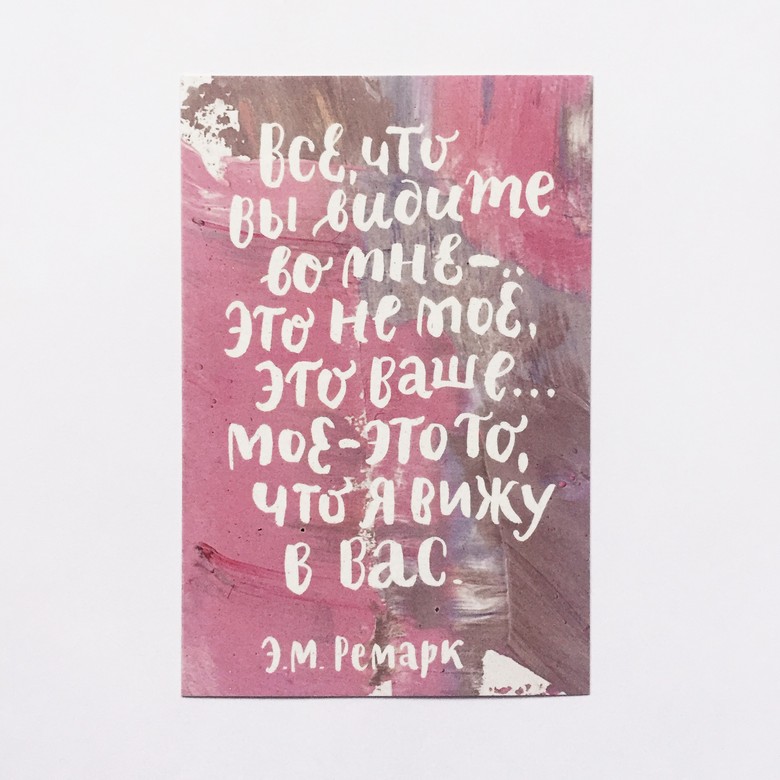 Всё, что
вы видите
во мне-
это не моё,
это ваше...
мое-это то,
что я вижу
в вас.
Э.М. Ремарк